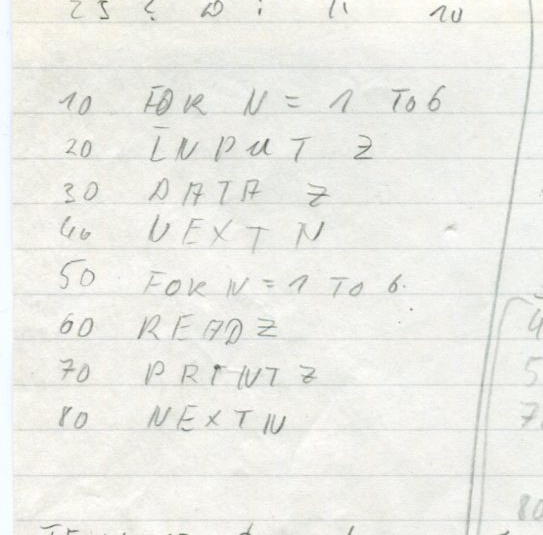 10 FOR N = 1 TO 6
20 INPUT Z
30 DATA Z
40 NEXT N
50 FOR N = 1 TO 6
60 READ Z
70 PRINT Z
80 NEXT N
80